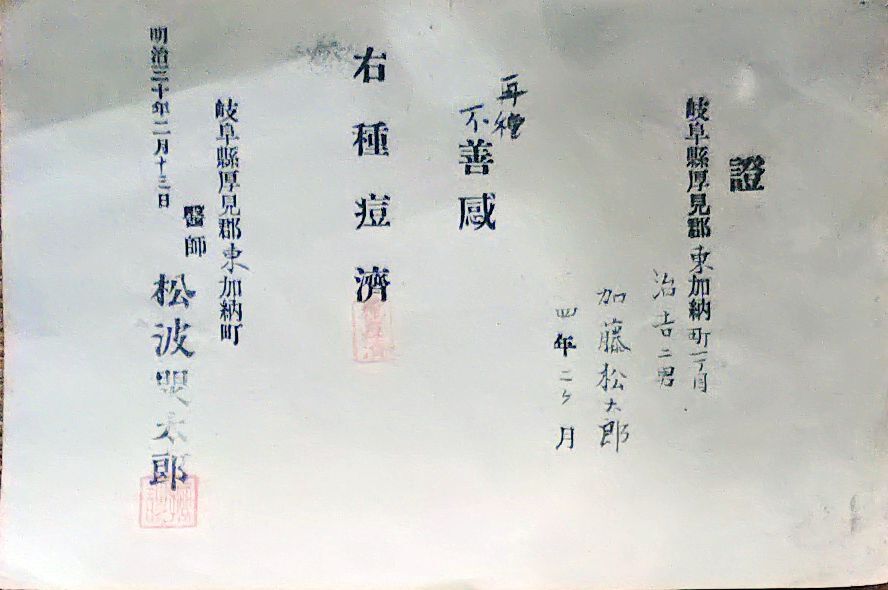 證
岐阜縣厚見郡東加納町一丁目
治吉二男
加藤松太郎
四年二ヶ月
再種
不善感
右種痘濟
明治三十年二月十三日
岐阜縣厚見郡東加納町
醫師
松波 太郎